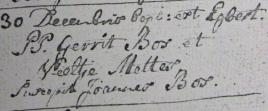 30 Decembris bapt: est Egbert.
PP. Gerrit Bos et
Metter
Suscepit Joannes Bos.